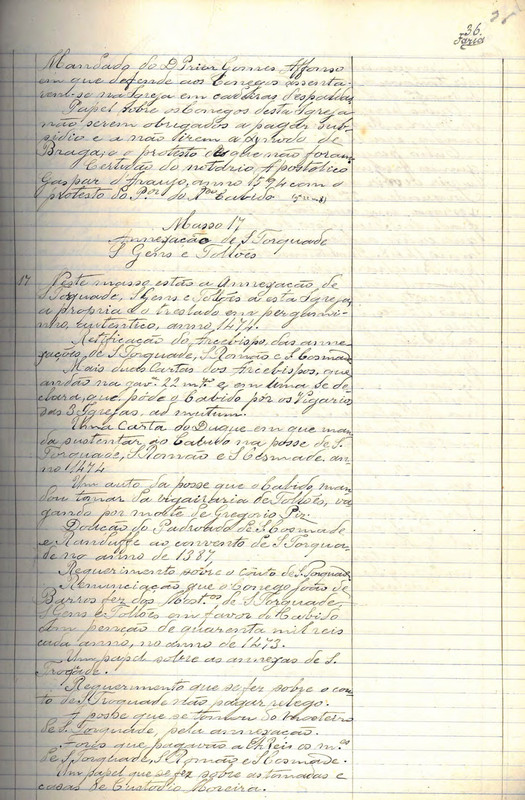 36.
Faria
Mandado do D. Prior Gomes Affonso
em que defende aos Conegos assenta-
rem-se na Igreja em cadeiras despaldas
Papel sobre os Conegos desta Igreja
não serem obrigados a pagar sub-
sidio e a não irem a Synodo de
Braga, e o protesto de que não foram
Certidão do notario Apostolico
Gaspar d'Araujo, anno 1594 com o
protesto do P.or do R.do Cabido
Masso 17
Annexação de S Torquade
S Gens e Tolões
17 Neste masso estão a Annexação de
S Torquade, S Gens e Tolões a esta Igreja,
a propria e o treslado em pergami-
nho, autentico, anno 1474.
Retificação do Arcebispo, das anne-
xações, de S Torquade, S Romão e S Cosmade
Mais duas Cartas dos Arcebispos, que
andão na gav. 22 m.º e, em uma se de-
clara, que pode o Cabido pôr os Vigarios
das 3 Igrejas, ad nutum.
Uma Carta do Duque em que man-
da sustentar ao Cabido na posse de S.
Torquade, S. Romão e S Cosmade. an-
no 1474
Um auto da posse que o Cabido man-
dou tomar da vigairaria de Tolões, va-
gando por morte de Gregorio Piz.
Doação do Padroado de S. Cosmade
e Randufe ao convento de S Torqua-
de no anno de 1387
Requerimento sobre o Couto de S. Torquade
Renunciação que o Conego João de
Barros fez dos Most.os de S Torquade
S Gens e Tolões em favor do Cabido
com penção de quarenta mil reis
cada anno, no anno de 1473.
Um papel sobre as annexas de S.
Troqade.
Requerimento que se fez sobre o cou-
to de S Troquade não pagar relego.
A posse que se tomou do Mosteiro
de S. Torquade, pela annexação.
Foros que pagavão a ElRei os m.os
de S Torquade, S Romão e S Cosmade.
Um papel que se fez sobre as tomadas e
casas de Custodio Moreira.